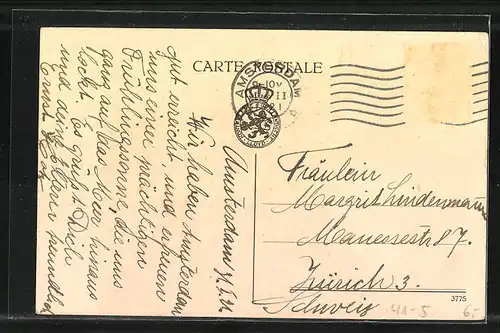 CARTE POSTALE
AMSTERDAM
Amsterdam
Wir haben Amsterdam
gut erreicht, und erfreuen
uns einer prächtigen
Frühlingssonne, die uns
ganz auf das Meer hinaus
lockt. Es grüsst Dich
und deine Eltern
Fräulein
Margrit Lindenmann
Manessestr 87.
Zürich 3.
Schweiz
3775
41-5
6.-